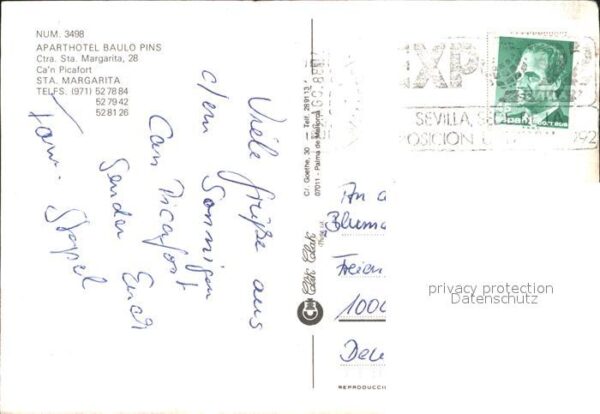 NUM. 3498
APARTHOTEL BAULO PINS
Ctra. Sta. Margarita, 28
Ca'n Picafort
STA. MARGARITA
TELFS. (971) 52 78 84
52 79 42
52 81 26
Viele Grüße aus
dem Sonnigen
Can Picafort
Senden Euch
Fam. Stapel
Cr. Goethe, 30 - Telf. 289113
07011 - Palma de Mallorca
Clik Clak
REPRODUCCI
EXP
SEVILLA, SE
POSICION U 992
España
An d
Blum
Freien
1000
privacy protection
Datenschutz